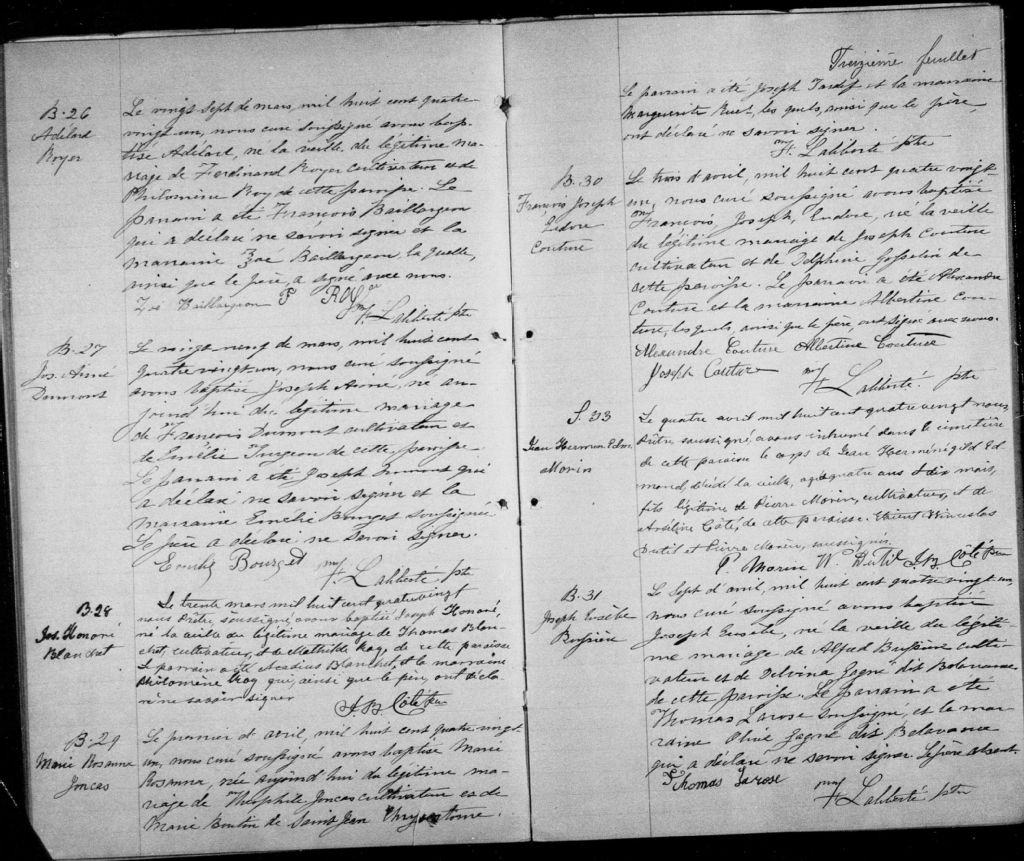 B. 26
Adélard
Royer
Le vingt sept de mars, mil huit cent quatre
vingt un, nous curé soussigné avons bap
tisé Adélard, né la veille du légitime ma
riage de Ferdinand Royer cultivateur et de
Philomène Roy de cette paroisse. Le
parrain a été François Baillargeon
qui a déclaré ne savoir signer et la
marraine Zoé Baillargeon laquelle,
ainsi que le père, a signé avec nous.
Zoé Baillargeon F ROYer
F. Laliberté ptre
B. 27
Jos. Aimé
Dumont
Le vingt neuf de mars, mil huit cent
quatre vingt un, nous curé soussigné
avons baptisé Joseph Aimé, né au
jourd'hui du légitime mariage
de François Dumont cultivateur et
de Emélie Turgeon de cette paroisse
Le parrain a été Joseph qui
a déclaré ne savoir signer et la
marraine Emélie Bourget soussignée
Le père a déclaré ne savoir signer.
Bourget F. Laliberté ptre
B. 28
Jos. Honoré
Blanchet
Le trente mars mil huit cent quatre vingt
nous Prêtre, soussigné, avons baptisé Joseph Honoré,
né la veille du légitime mariage de Thomas Blan
chet, cultivateur, et de Mathilde Roy de cette paroisse
Le parrain a été Acadius Blanchet, et la marraine
Philomène Roy qui, ainsi que le père, ont décla
ré ne savoir signer
J. B. Côté Ptre
B. 29
Marie Rosanna
Joncas
Le premier d'avril, mil huit cent quatre vingt
un, nous curé soussigné avons baptisé Marie
Rosanna, née aujourd'hui du légitime ma
riage de Théophile Joncas cultivateur et de
Marie Bouton de Saint Jean Chrysostome.
Treizième feuillet
Le parrain a été Joseph Tardif et la marraine
Marguerite Ruel, lesquels, ainsi que le père,
ont déclaré ne savoir signer.
F. Laliberté ptre
B. 30
François Joseph
Ludore
Couture
Le trois d'avril, mil huit cent quatre vingt
un, nous curé soussigné avons baptisé
François, Joseph, Ludore, né la veille
du légitime mariage de Joseph Couture
cultivateur et de Delphine Gosselin de
cette paroisse. Le parrain a été Alexandre
Couture et la marraine Albertine Cou
ture, lesquels, ainsi que le père ont signé avec nous.
Alexandre Couture Albertine Couture
Joseph Couture F. Laliberté ptre
S. 313
Jean Hermen. Edm.
Morin
Le quatre avril mil huit cent quatre vingt nous,
Prêtre soussigné, avons inhumé dans le cimetière
de cette paroisse le corps de Jean Herménégild Ed
mond, décédé la veille, agé quatre ans et dix mois,
fils légitime de Pierre Morin, cultivateur, et de
Adéline Côté, de cette paroisse. Etaient Winceslas
Dutil et Pierre Morin, soussignés.
P. Morin W. Dutil J. B. Côté Ptre
B. 31
Joseph Eusèbe
Bussière
Le sept d'avril, mil huit cent quatre vingt un,
nous curé soussigné avons baptisé
Joseph Eusèbe, né la veille du légiti
me mariage de Alfred Bussière culti
vateur et de Delvina Gagné dit Belavance
de cette paroisse. Le parrain a été
Thomas Larose soussigné, et la mar
raine Olive Gagné dit Belavance
qui a déclaré ne savoir signer. Le père absent.
Thomas Larose F. Laliberté ptre